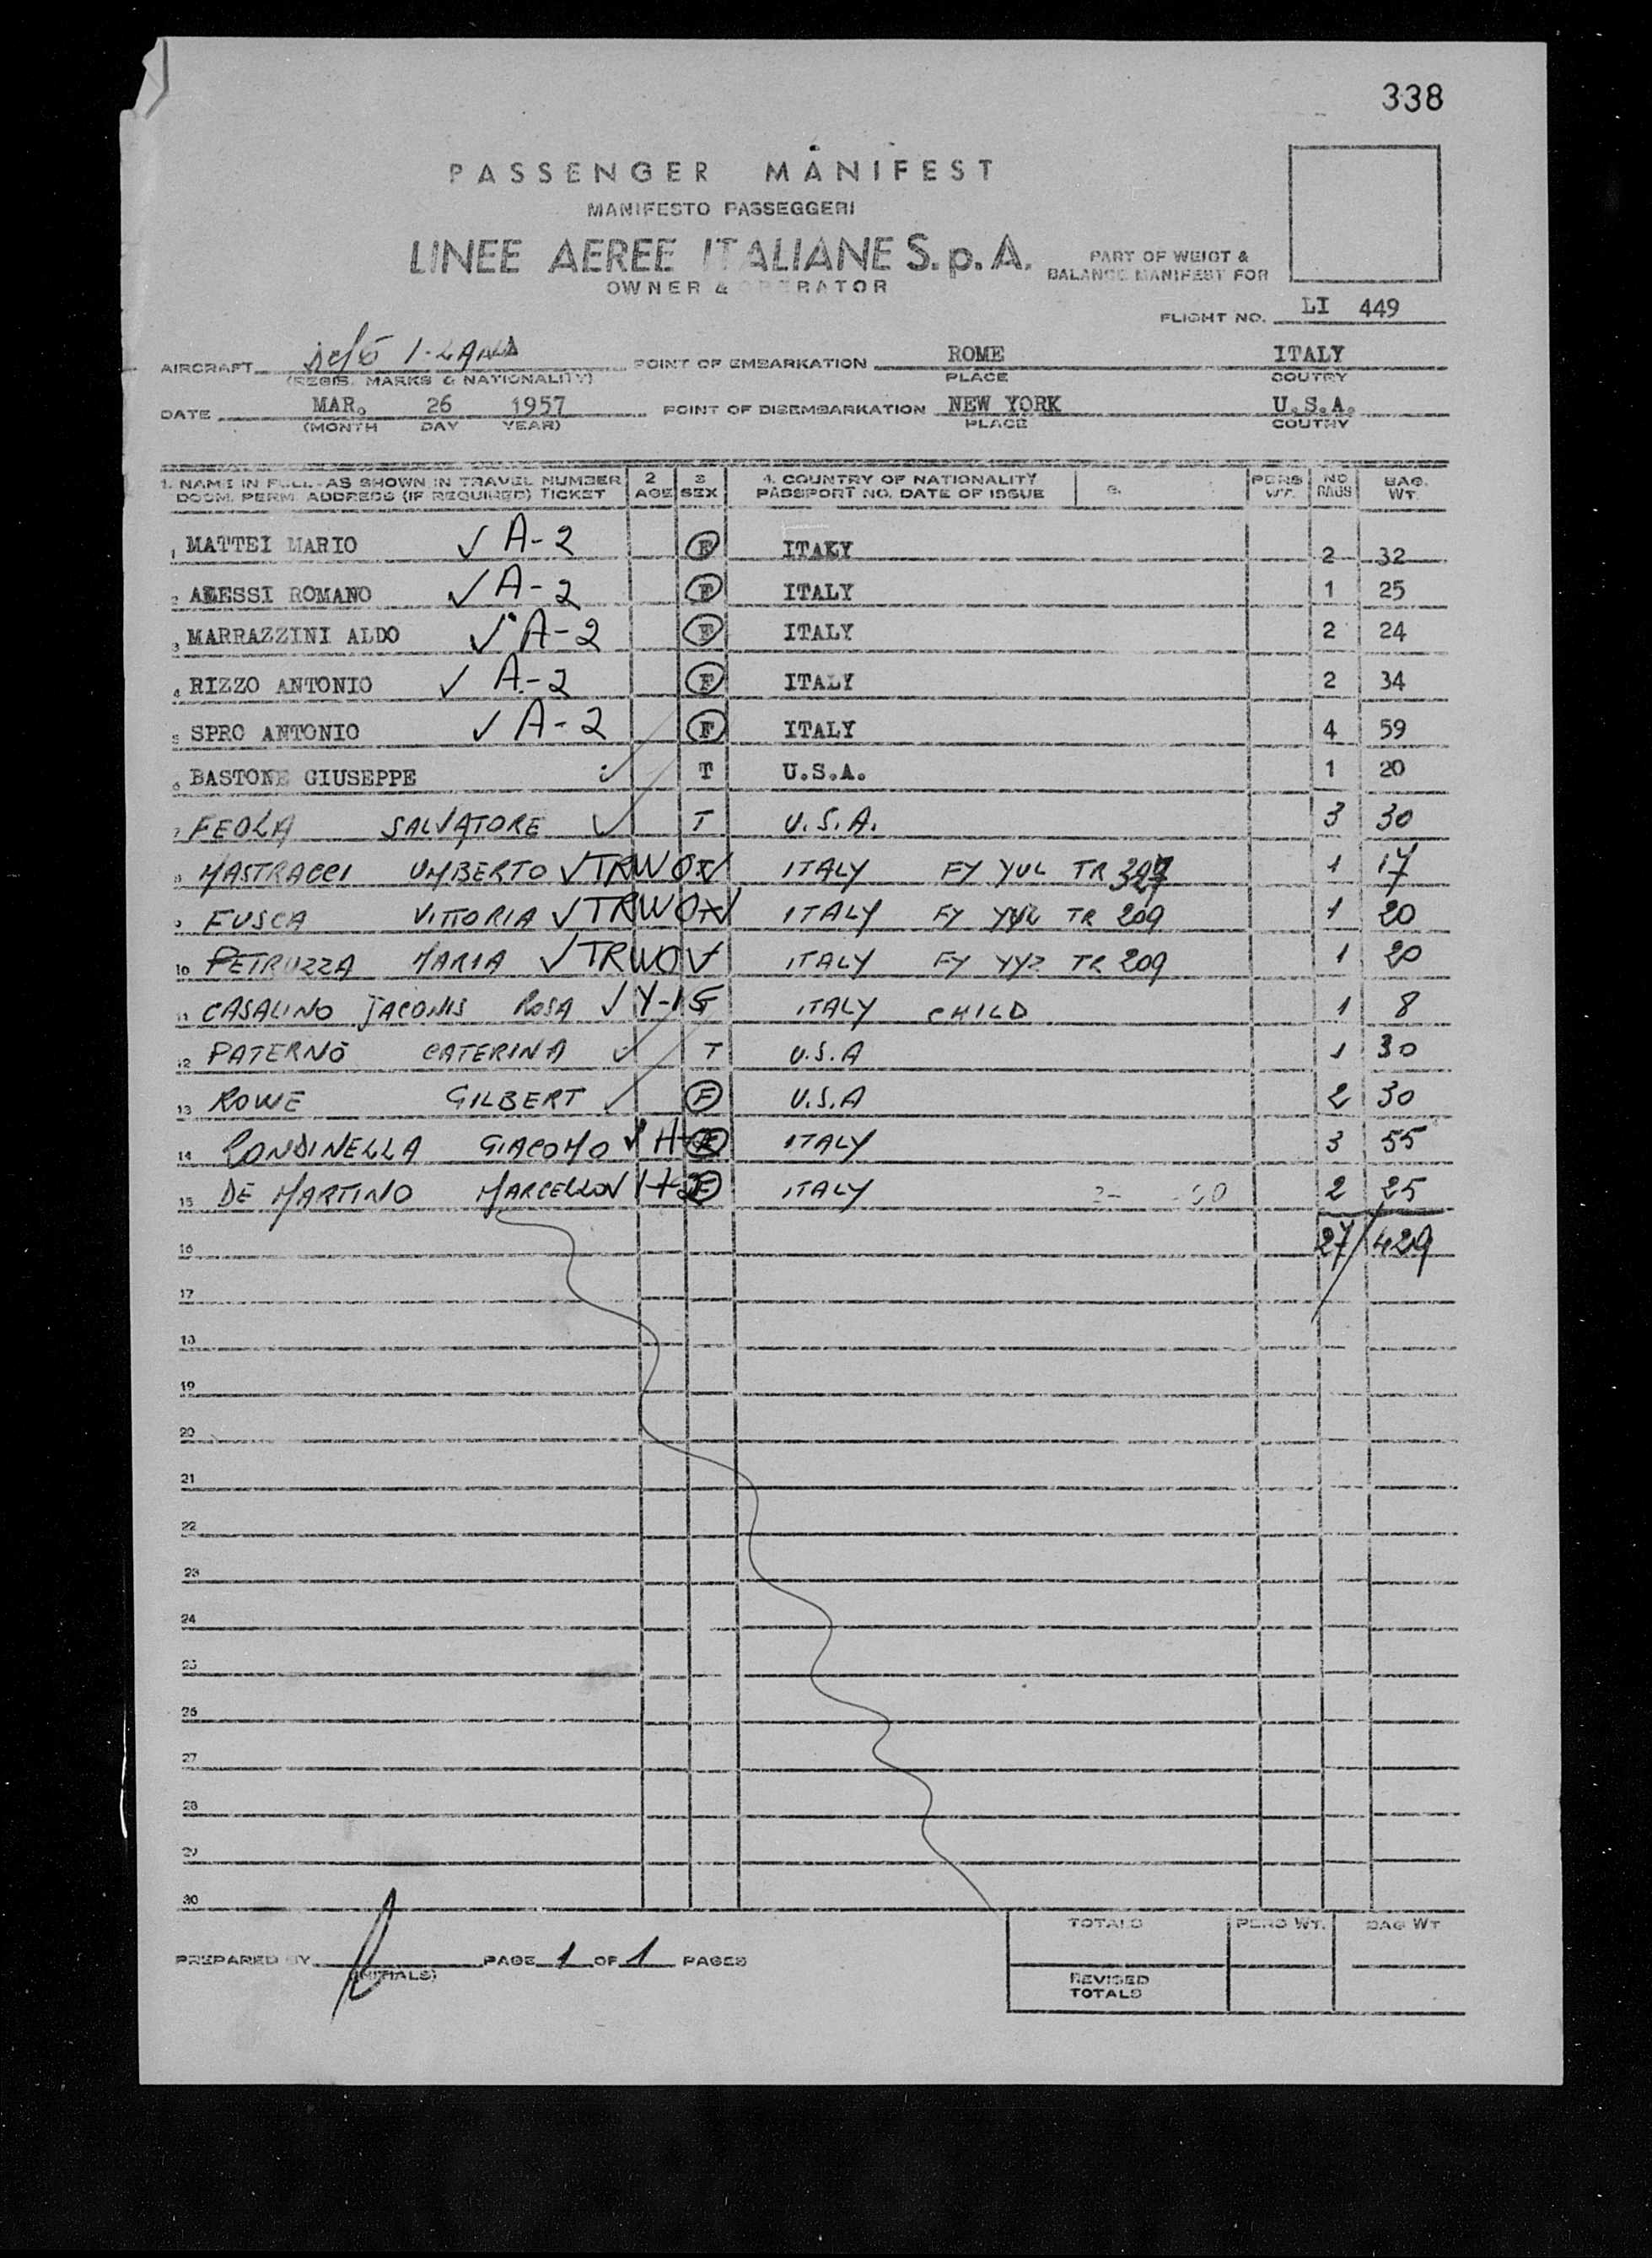 338
PASSENGER MANIFEST
MANIFESTO PASSEGGERI
LINEE AEREE ITALIANE S.p.A.
OWNER & OPERATOR
PART OF WEIGT &
BALANCE MANIFEST FOR
FLIGHT NO. LI 449
AIRCRAFT POINT OF EMBARKATION ROME ITALY
(REGIS. MARKS & NATIONALITY) PLACE COUTRY
DATE MAR. 26 1957 POINT OF DISEMBARKATION NEW YORK U.S.A.
(MONTH DAY YEAR) PLACE COUTRY
1. NAME IN FULL AS SHOWN IN TRAVEL NUMBER 2 3 4. COUNTRY OF NATIONALITY PERS NO BAG.
DOCM. PERM. ADDRESS (IF REQUIRED) TICKET AGE SEX PASSPORT NO. DATE OF ISSUE WT. BAGS WT.
1 MATTEI MARIO ✓ A-2 F ITAKY 2 32
2 ALESSI ROMANO ✓ A-2 F ITALY 1 25
3 MARRAZZINI ALDO ✓ A-2 F ITALY 2 24
4 RIZZO ANTONIO ✓ A-2 F ITALY 2 34
5 SPRO ANTONIO ✓ A-2 F ITALY 4 59
6 BASTONE GIUSEPPE ✓ T U.S.A. 1 20
7 FEOLA SALVATORE ✓ T U.S.A. 3 30
8 MASTRACCI UMBERTO ✓ TRWOV ITALY FY YUL TR 1 17
9 FUSCA VITTORIA ✓ TRWOV ITALY FY YUL TR 209 1 20
10 PETRUZZA MARIA ✓ TRWOV ITALY FY YYZ TR 209 1 20
11 CASALINO JACONIS ROSA ✓ Y-1 ITALY CHILD 1 8
12 PATERNÒ CATERINA ✓ T U.S.A 1 30
13 ROWE GILBERT ✓ F U.S.A 2 30
14 LONDINELLA GIACOMO ✓ ITALY 3 55
15 DE MARTINO MARCELLO ✓ F ITALY 2 25
16 27/429
17
18
19
20
21
22
23
24
25
26
27
28
29
30
TOTALS PERS WT. BAG WT
PREPARED BY PAGE 1 OF 1 PAGES
(INITIALS)
REVISED
TOTALS